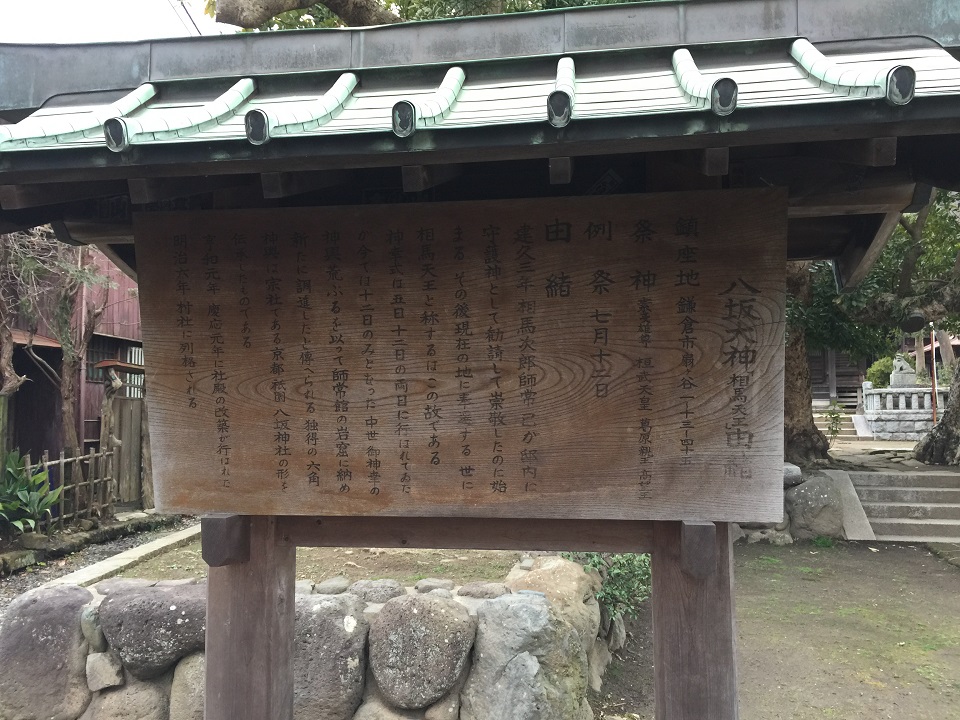 八坂大神「相馬天王」由緒
鎮座地 鎌倉市扇ヶ谷一ー十三ー四十五
祭神 素盞雄尊 桓武天皇 葛原親王 高望王
例祭 七月十二日
由結
建久三年 相馬次郎師常 己が邸内に
守護神として勧請して崇敬したのに始
まる その後現在の地に奉する 世に
相馬天王と称するはこの故である
神幸式は五日 十二日の両日に行はれてゐた
が今ては十二日のみとなった 中世 御神輿の
神威荒ぶるを以って師常館の岩窟に納め
新たに調進したと傳へられる 独得の六角
神輿に宗社である京都祇園 八坂神社の形を
伝へたものである
享和元年 慶応元年に社殿の改築が行はれた
明治六年 村社に列格される